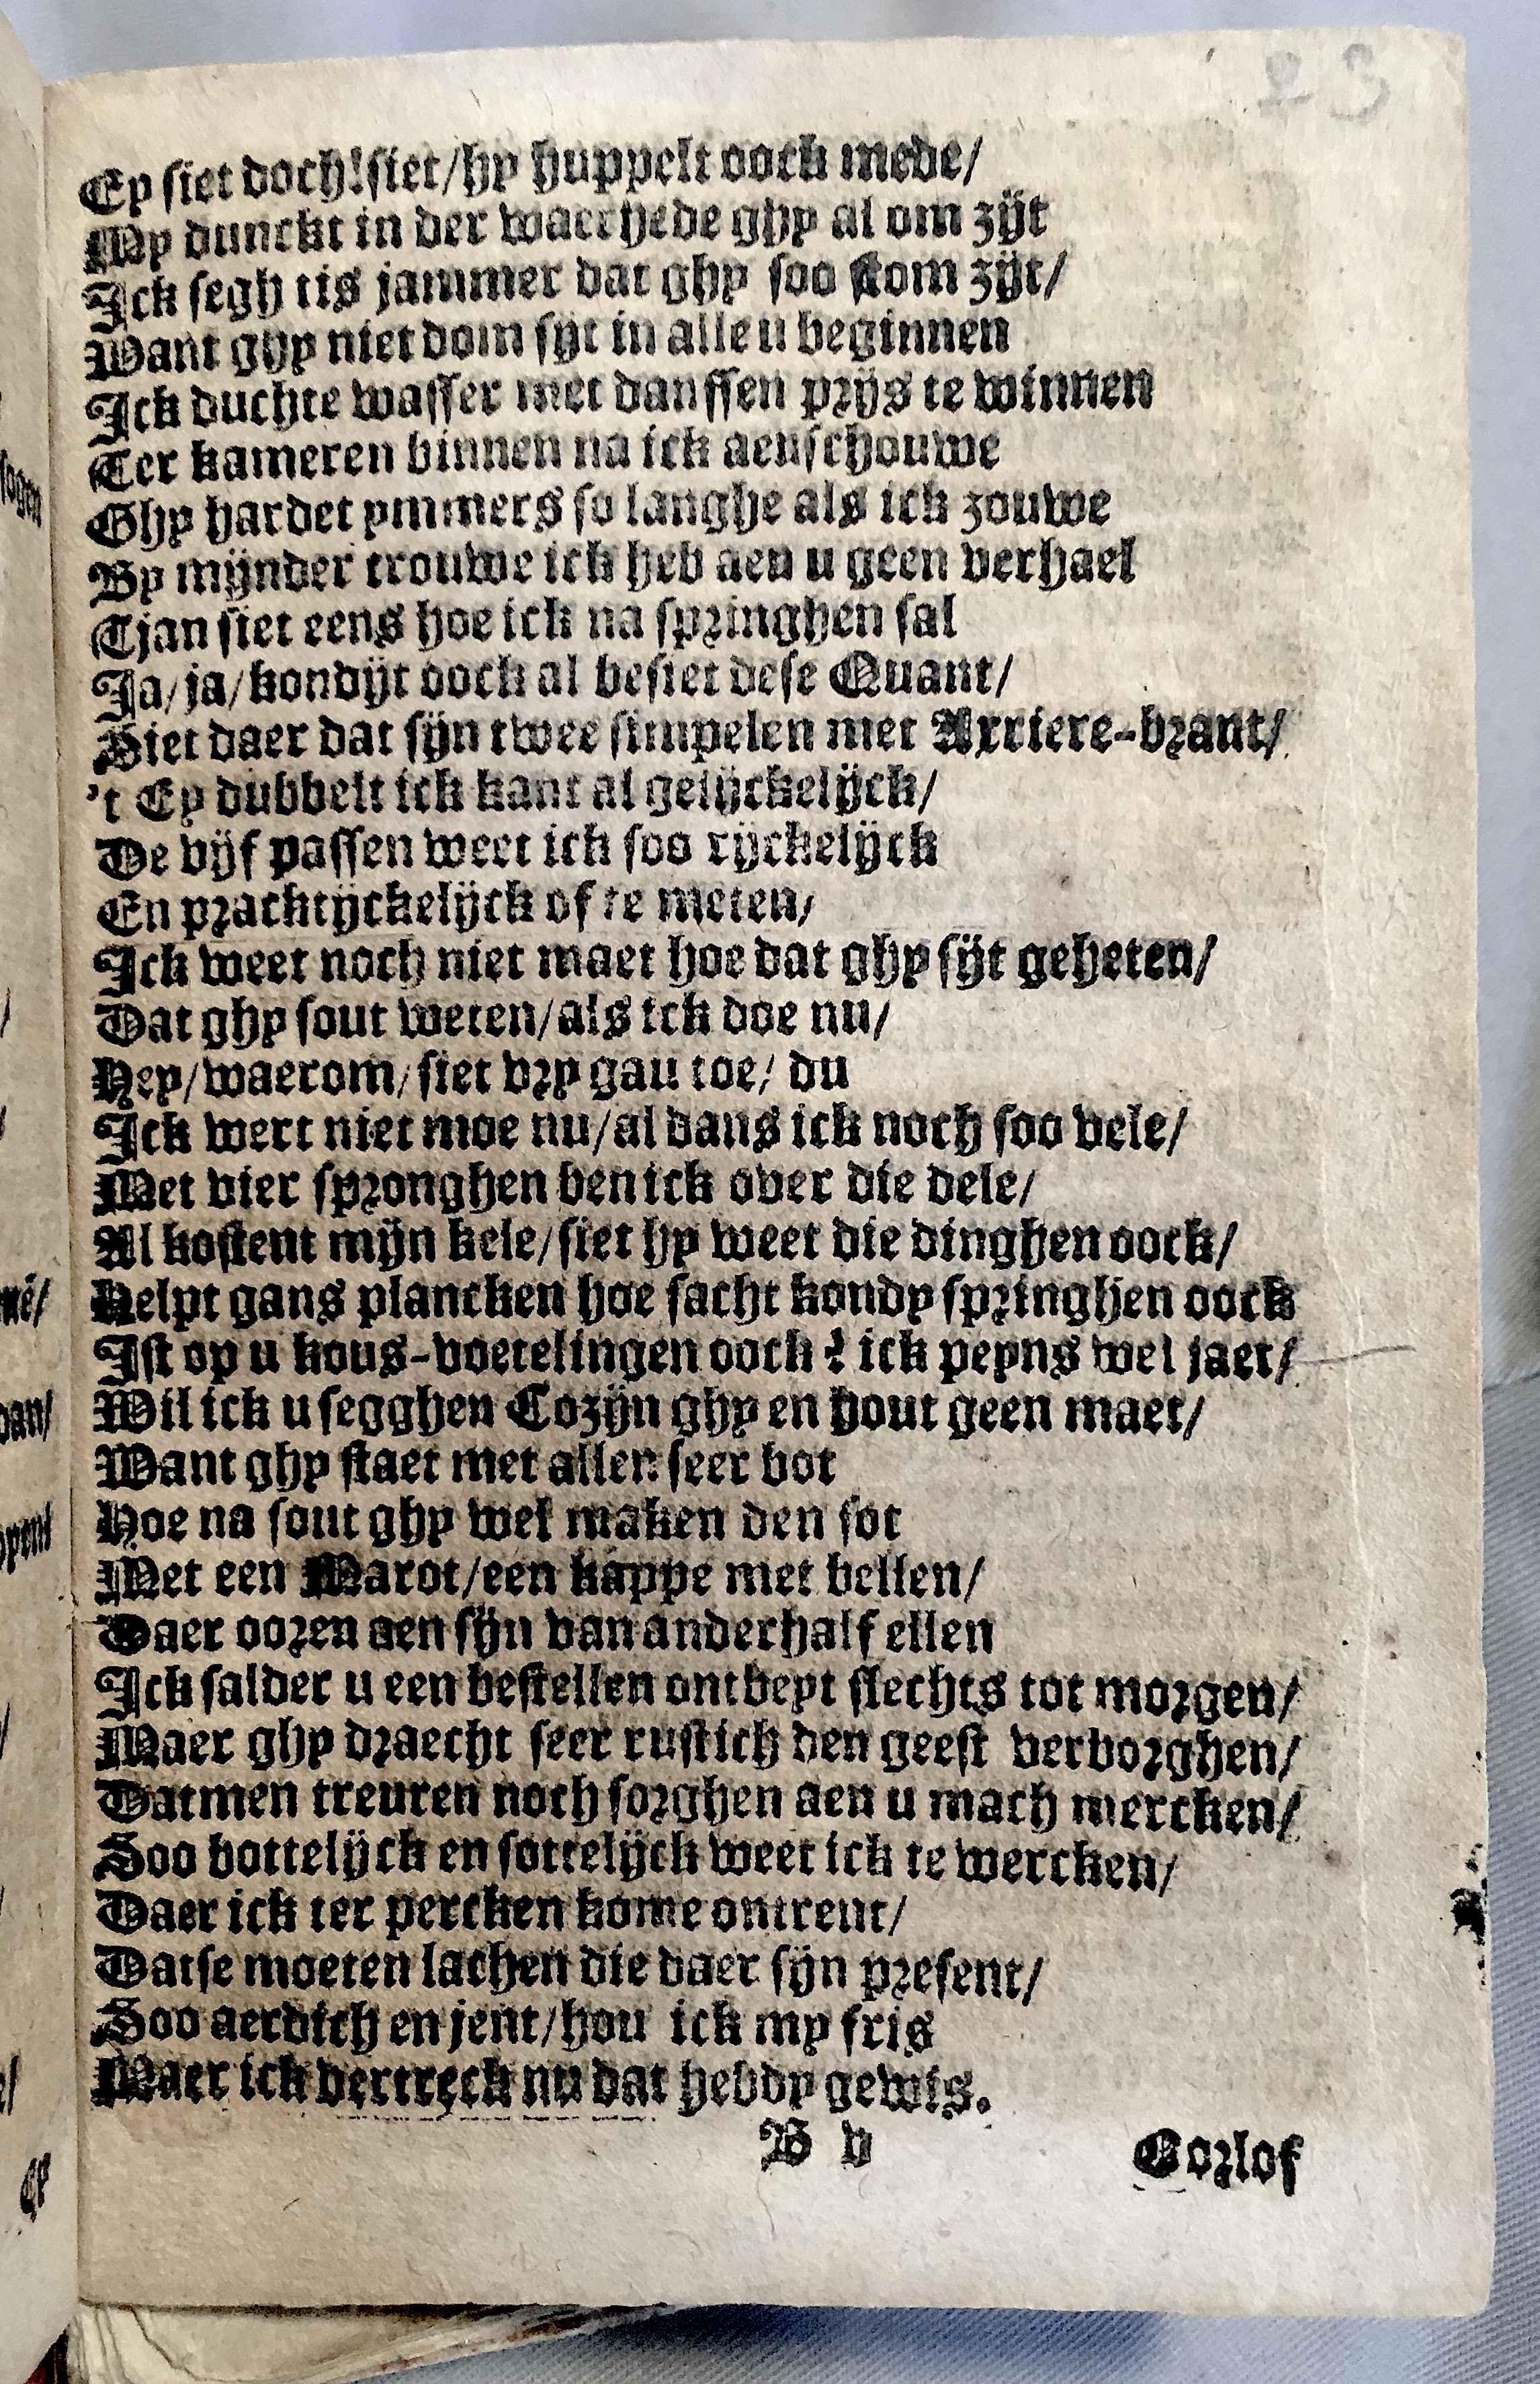 23
Ey siet doch! siet/hy huppelt oock mede/
My dunckt in der waerhede ghy al om zijt
Ick segh tis jammer dat ghy soo stom zijt/
Want ghy niet dom sijt in alle u beginnen
Ick duchte wasser met danssen prijs te winnen
Ter kameren binnen na ick aenschouwe
Ghy hardet ymmers so langhe als ick zouwe
By mijnder trouwe ick heb aen u geen verhael
Tjan siet eens hoe ick na springhen sal
Ja/ja/kondijt oock al besiet dese Quant/
Siet daer dat sijn twee simpelen met Arriere-brant/
't Ey dubbelt ick kant al gelijckelijck/
De vijf passen weet ick soo rijckelijck
En pracktijckelijck of te meten/
Ick weet noch niet maet hoe dat ghy sijt geheten/
Dat ghy sout weten/als ick doe nu/
Hey/waerom/siet vry gau toe/du
Ick wert niet moe nu/al dans ick noch soo vele/
Met vier spronghen ben ick over die dele/
Al kostent mijn kele/siet hy weet die dinghen oock/
Helpt gans plancken hoe sacht kondy springhen oock
Ist op u kous-voetelingen oock? ick peyns wel jaet/
Wil ick u segghen Cozijn ghy en hout geen maet/
Want ghy staet met allen seer bot
Hoe na sout ghy wel maken den sot
Met een Marot/een kappe met bellen/
Daer ooren aen sijn van anderhalf ellen
Ick salder u een bestellen ontbeyt slechts tot morgen/
Maer ghy draecht seer rustich den geest verborghen/
Datmen treuren noch sorghen aen u mach mercken/
Soo bottelijck en sottelijck weet ick te wercken/
Daer ick ter percken kome ontrent/
Datse moeten lachen die daer sijn present/
Soo aerdich en jent/hou ick my fris
Maer ick vertreck nu dat hebdy gewis.
B v
Oorlof